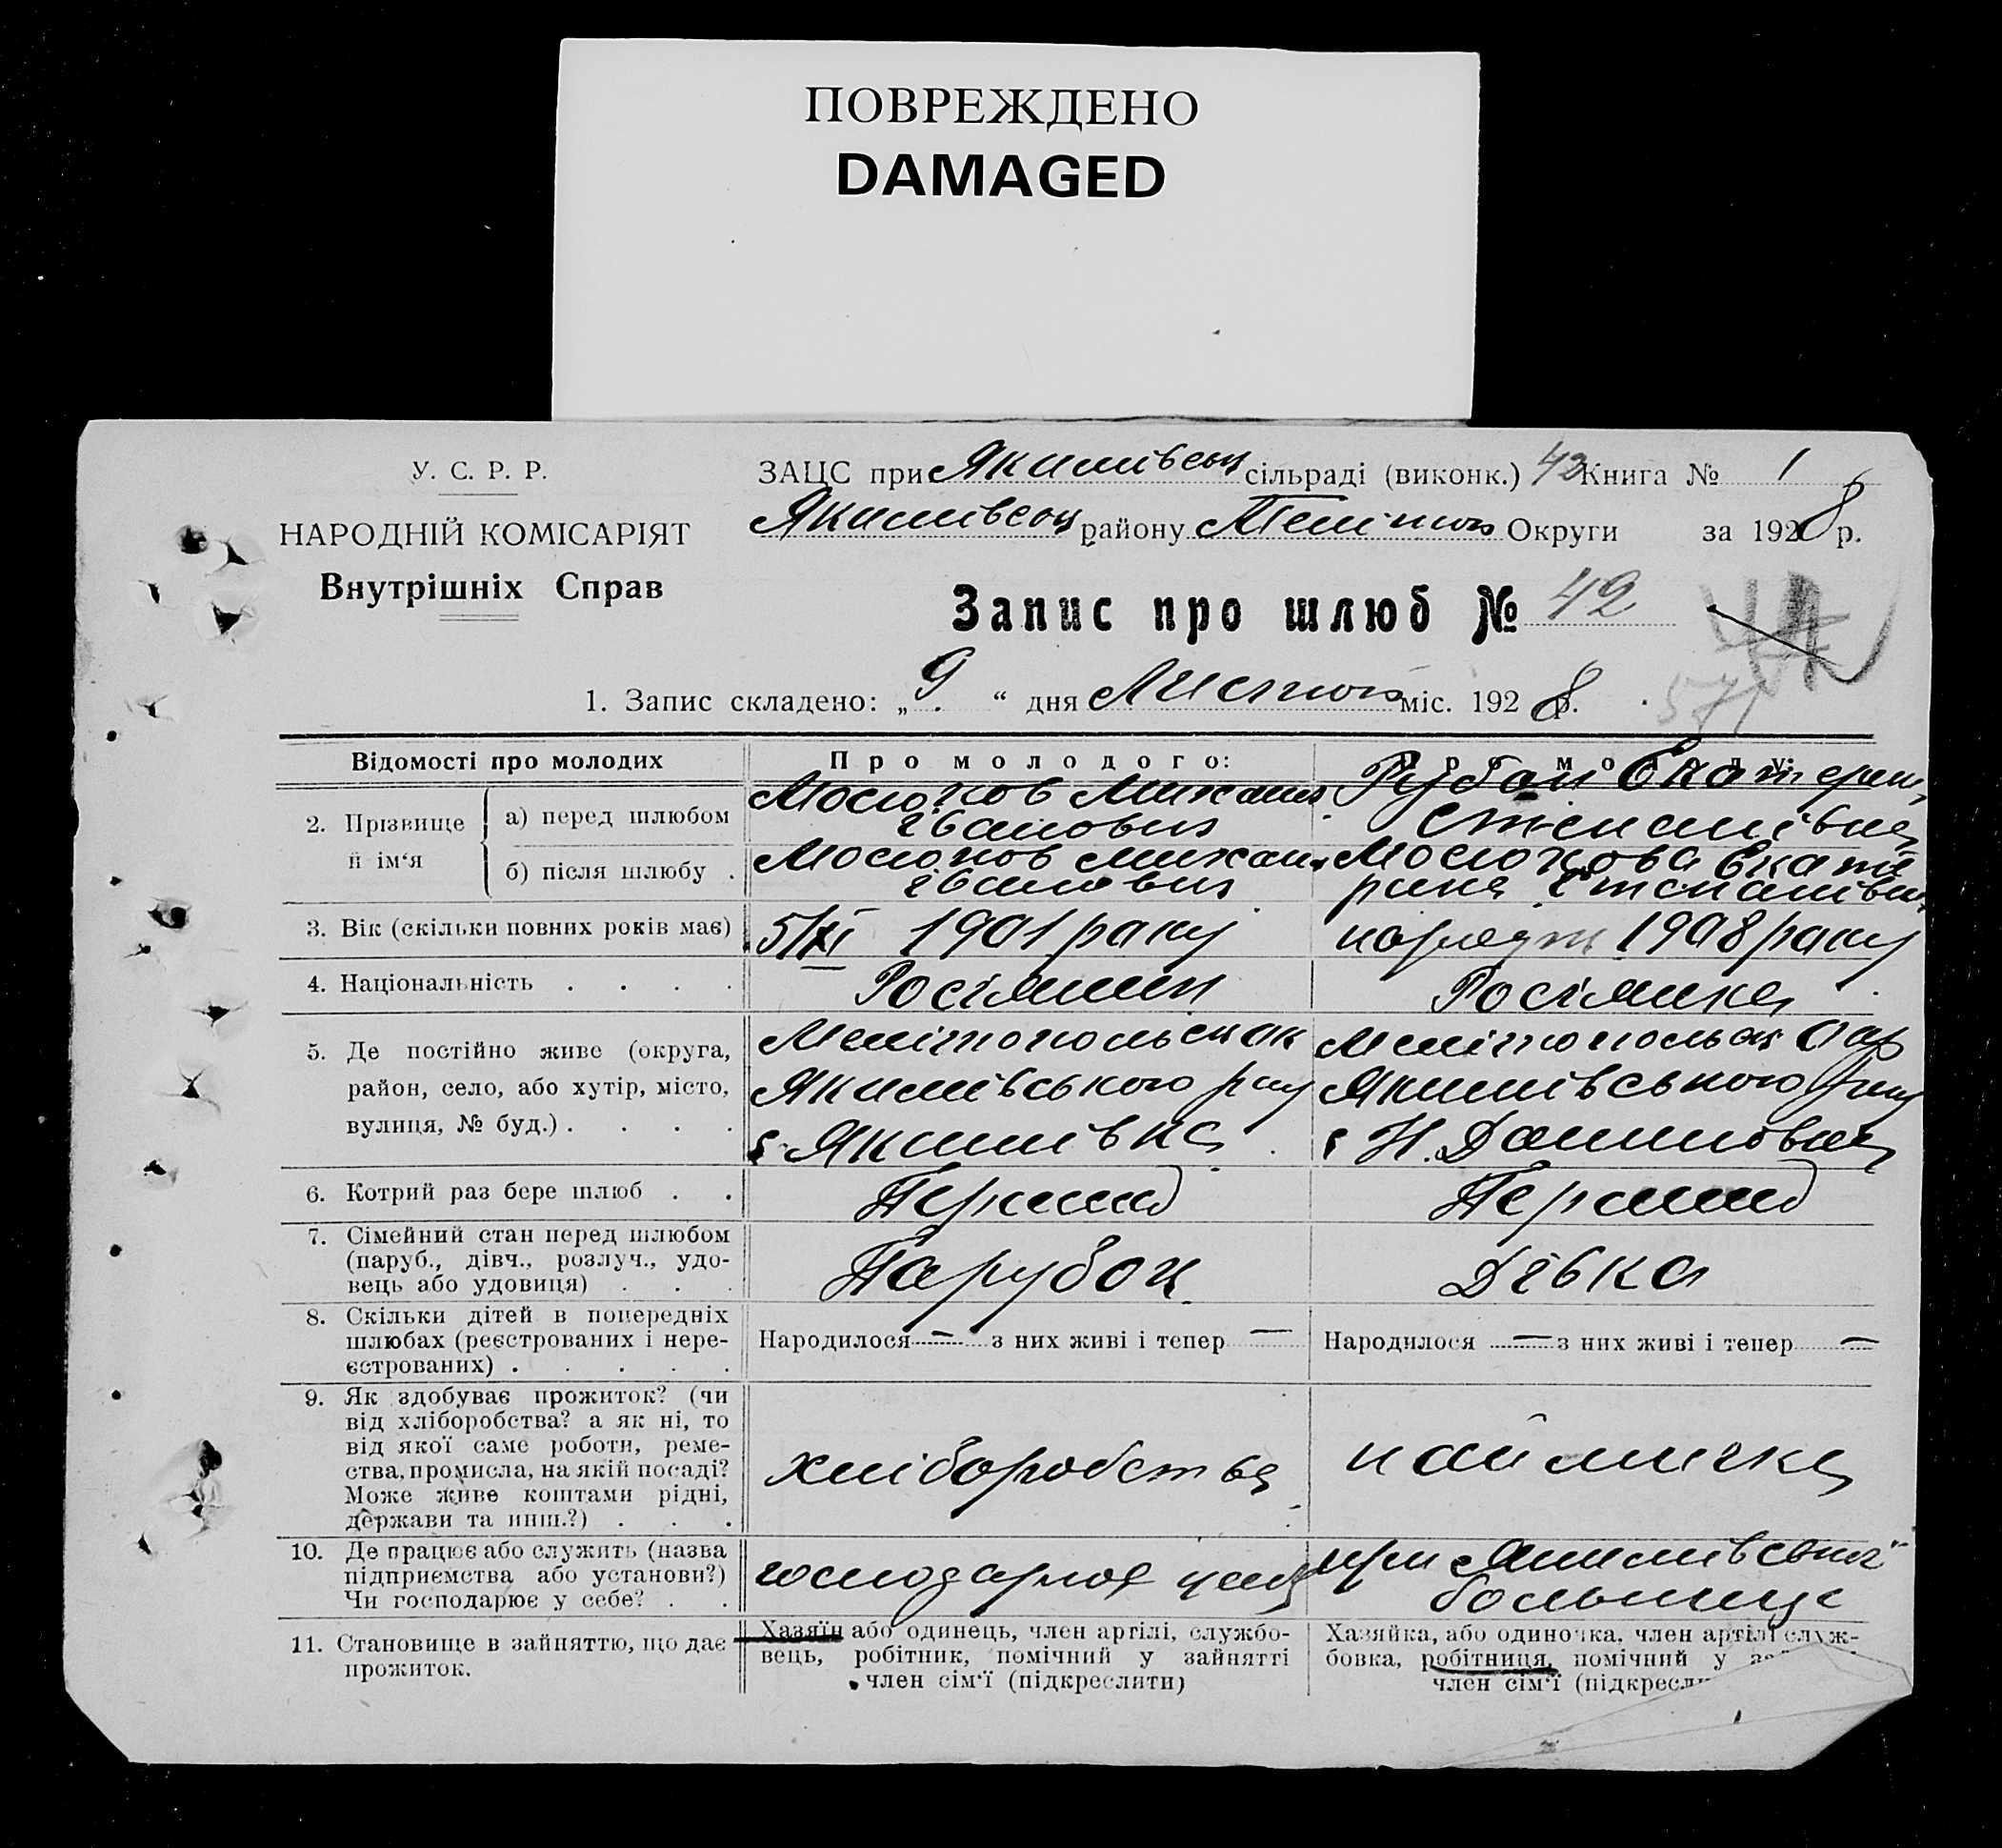 ПОВРЕЖДЕНО
DAMAGED
У. С. Р. Р.
НАРОДНІЙ КОМІСАРІЯТ
Внутрішніх Справ
ЗАЦС при Якимівськ сільраді (виконк.) 42 Книга № 1
Якимівськ району Меліт Округи за 1928 р.
Запис про шлюб № 42
571
1. Запис складено: „ 9 “ дня Листоп міс. 192 8 р.
Відомості про молодих
Про молодого:
Про молоду:
2. Прізвище й ім‘я
а) перед шлюбом
Мосюков Михаил
Іванович
Рубан Екатерин
Степанівна
б) після шлюбу .
Мосюков Михаил
Іванович
Мосюкова Екате
рина Степанівна
3. Вік (скільки повних років має)
5/XI 1901 року
народж 1908 року
4. Національність . . . .
Росіянин
Росіянка
5. Де постійно живе (округа,
район, село, або хутір, місто,
вулиця, № буд.) . . . .
Мелітопольськ ок
Якимівського рну
с. Якимівка
Мелітопольськ Окр
Якимівського рну
с Н. Даниловка
6. Котрий раз бере шлюб . .
Перший
Перший
7. Сімейний стан перед шлюбом
(паруб., дівч., розлуч., удо-
вець або удовиця) . . .
Парубок
Дівка
8. Скільки дітей в попередніх
шлюбах (реєстрованих і нере-
єстрованих) . . . . .
Народилося — з них живі і тепер —
Народилося — з них живі і тепер —
9. Як здобуває прожиток? (чи
від хліборобства? а як ні, то
від якої саме роботи, реме-
ства, промисла, на якій посаді?
Може живе коштами рідні,
держави та инш.?) . . .
хліборобства
наймичка
10. Де працює або служить (назва
підприємства або установи?)
Чи господарює у себе? . .
господарює
при Якимівській
больниці
11. Становище в зайняттю, що дає
прожиток.
Хазяїн або одинець, член артілі, службо-
вець, робітник, помічний у зайнятті
член сім‘ї (підкреслити)
Хазяйка, або одиночка, член артілі служ-
бовка, робітниця, помічний у
член сім‘ї